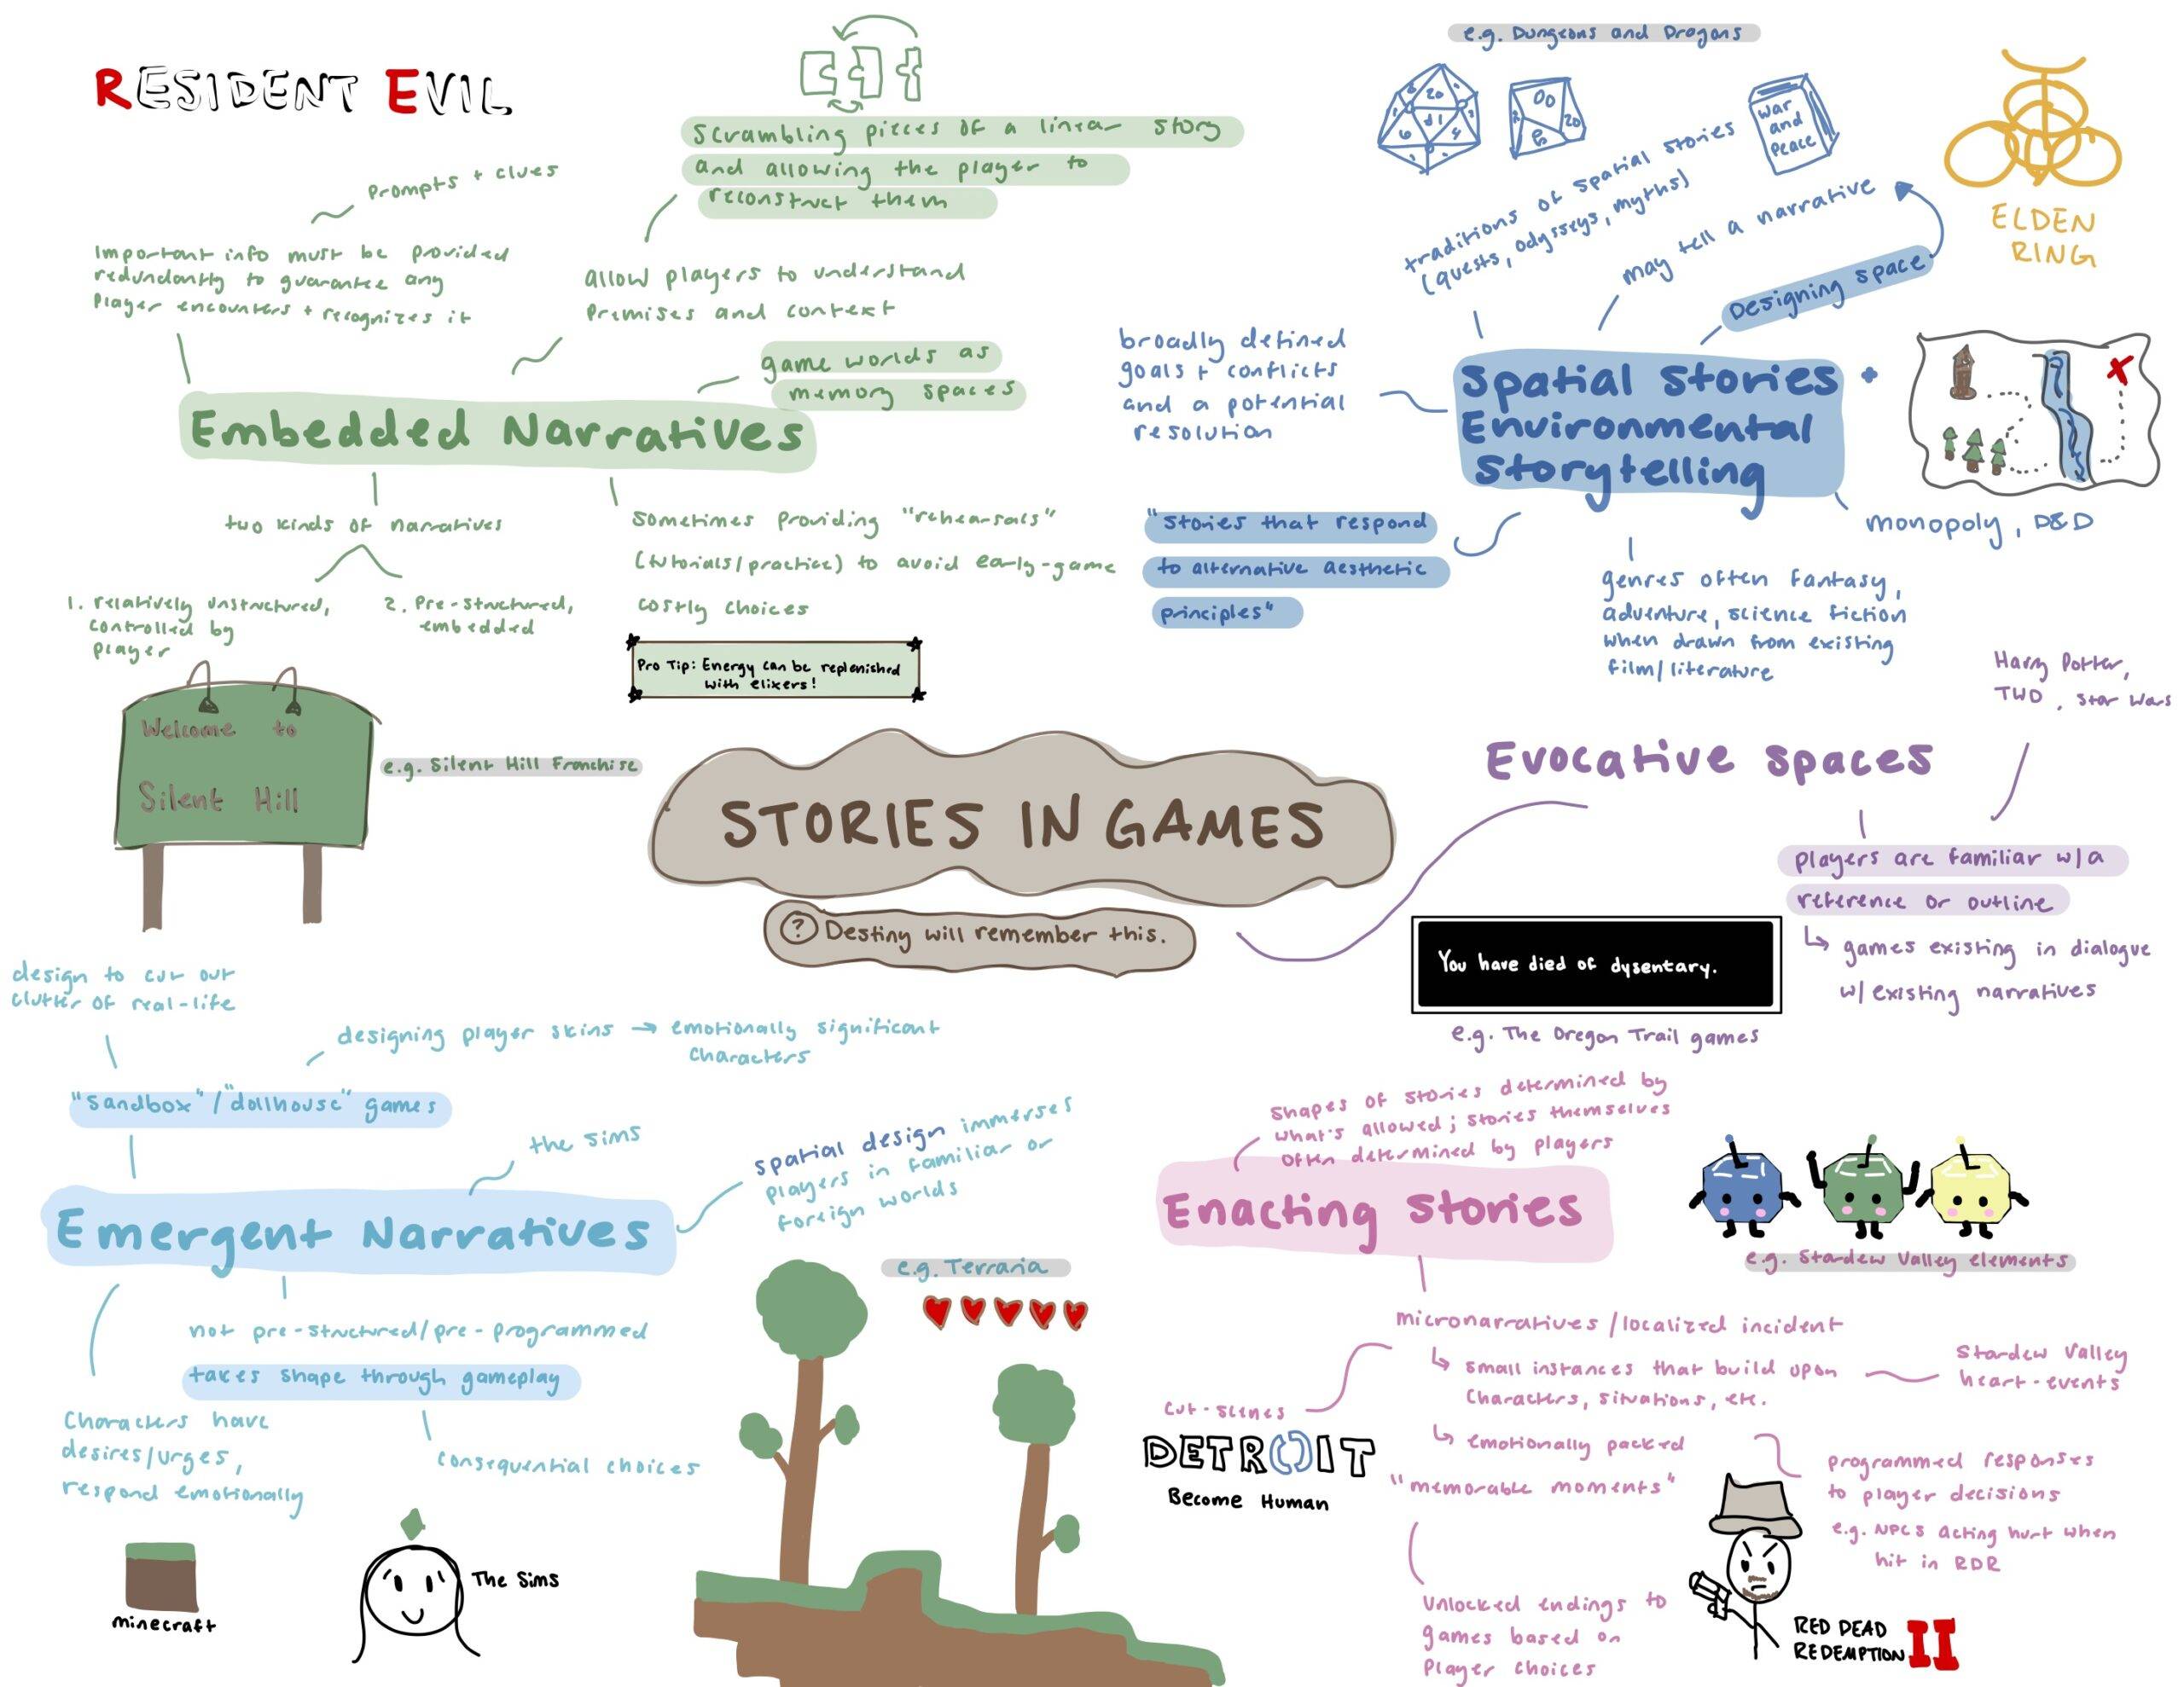 RESIDENT EVIL
prompts + clues
Important info must be provided
redundantly to guarantee any
player encounters + recognizes it
scrambling pieces of a linear story
and allowing the player to
reconstruct them
allow players to understand
premises and context
game worlds as
memory spaces
Embedded Narratives
two kinds of narratives
1. relatively unstructured,
controlled by
player
2. Pre-structured,
embedded
sometimes providing "rehearsals"
(tutorials/practice) to avoid early-game
costly choices
Pro Tip: Energy can be replenished
with elixers!
Welcome to
Silent Hill
e.g. Silent Hill Franchise
e.g. Dungeons and Dragons
20
War
and
Peace
traditions of spatial stories
(quests, odysseys, myths)
may tell a narrative
Designing space
ELDEN
RING
broadly defined
goals + conflicts
and a potential
resolution
Spatial Stories +
Environmental
Storytelling
"stories that respond
to alternative aesthetic
principles"
monopoly, D&D
genres often fantasy,
adventure, science fiction
when drawn from existing
film/literature
STORIES IN GAMES
? Destiny will remember this.
Harry Potter,
TWD, Star Wars
Evocative spaces
players are familiar w/a
reference or outline
↳ games existing in dialogue
w/existing narratives
You have died of dysentary.
e.g. The Oregon Trail games
design to cut out
clutter of real-life
designing player skins → emotionally significant
characters
"sandbox"/"dollhouse" games
the sims
spatial design immerses
players in familiar or
foreign worlds
Emergent Narratives
not pre-structured/pre-programmed
takes shape through gameplay
characters have
desires/urges,
respond emotionally
consequential choices
minecraft
The Sims
e.g. Terraria
shapes of stories determined by
what's allowed; stories themselves
often determined by players
Enacting Stories
e.g. Stardew Valley elements
micronarratives/localized incident
↳ small instances that build upon
characters, situations, etc.
Stardew Valley
heart-events
cut-scenes
↳ emotionally packed
"memorable moments"
DETROIT
Become Human
programmed responses
to player decisions
e.g. NPCs acting hurt when
hit in RDR
Unlocked endings to
games based on
player choices
RED DEAD
REDEMPTION II